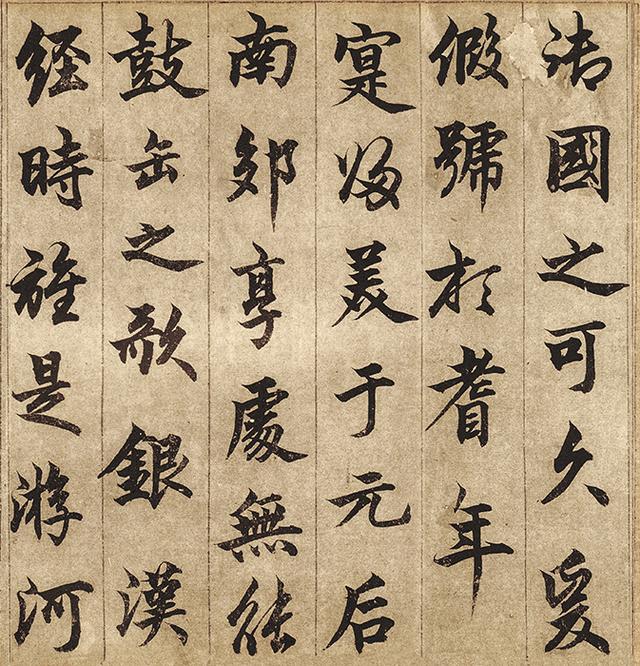 國之可久爰
假號於耆年
寔歸美于元后
南郊享處無能
鼓缶之歌銀漢
経時雅是游河